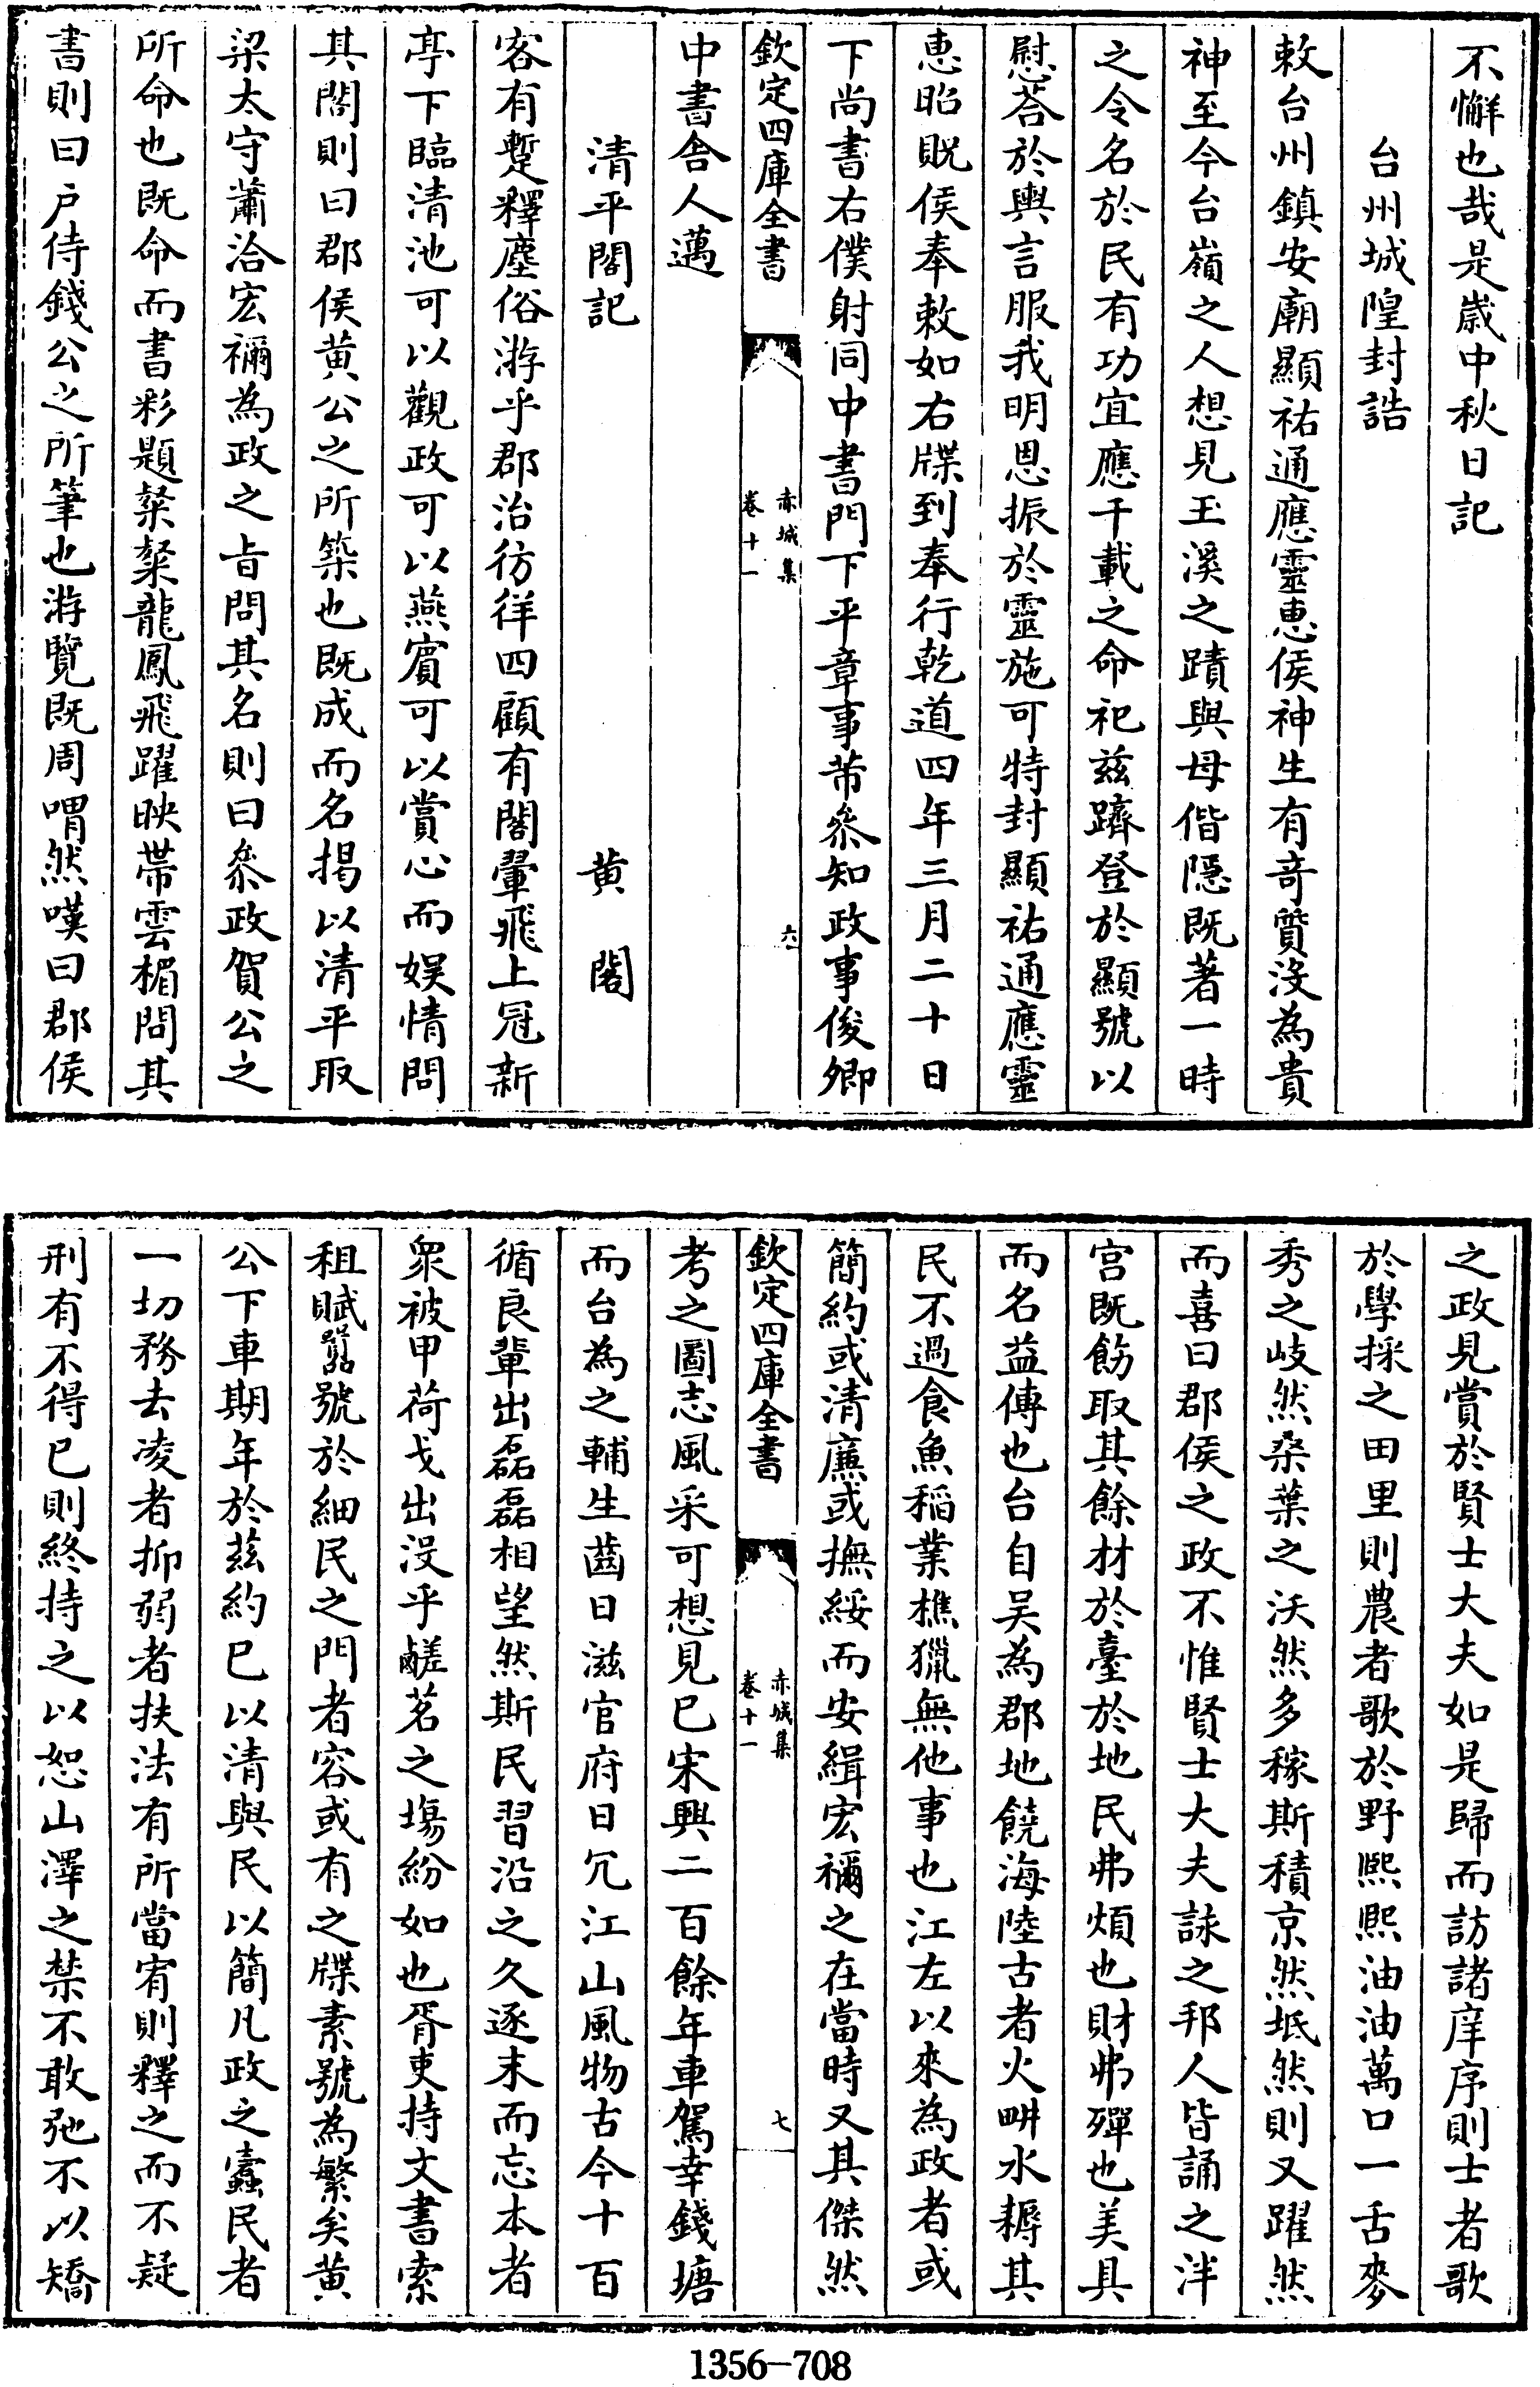 不懈也哉是嵗中秋日記
台州城隍封誥
敕台州鎮安廟顯祐通應靈惠侯神生有竒質沒為貴
神至今台嶺之人想見玉溪之蹟與母偕隠既著一時
之令名於民有功宜應千載之命祀兹躋登於顯號以
慰荅於輿言服我明恩振於靈施可特封顯祐通應靈
惠昭貺侯奉敕如右牒到奉行乾道四年三月二十日
下尚書右僕射同中書門下平章事芾叅知政事俊卿
欽定四庫全書
赤城集
卷十一
六
中書舎人邁
清平閣記
黄閣
客有蹔釋塵俗游乎郡治彷徉四顧有閣翬飛上冠新
亭下臨清池可以觀政可以燕賔可以賞心而娱情問
其閣則曰郡侯黄公之所築也既成而名掲以清平取
梁太守蕭洽宏禰為政之㫖問其名則曰叅政賀公之
所命也既命而書彩題粲粲龍鳳飛躍映帯雲楣問其
書則曰戸侍錢公之所筆也游覽既周喟然嘆曰郡侯
之政見賞於賢士大夫如是歸而訪諸庠序則士者歌
於學採之田里則農者歌於野熈熈油油萬口一舌麥
秀之岐然桑葉之沃然多稼斯積京然坻然則又躍然
而喜曰郡侯之政不惟賢士大夫詠之邦人皆誦之泮
宫既飭取其餘材於臺於地民弗煩也財弗殫也美具
而名益傳也台自吴為郡地饒海陸古者火畊水耨其
民不過食魚稻業樵獵無他事也江左以來為政者或
簡約或清㢘或撫綏而安緝宏禰之在當時又其傑然
欽定四庫全書
赤城集
卷十一
七
考之圖志風采可想見已宋興二百餘年車駕幸錢塘
而台為之輔生齒日滋官府日冗江山風物古今十百
循良輩出磊磊相望然斯民習沿之久逐末而忘本者
衆被甲荷戈出没乎鹺茗之塲紛如也胥吏持文書索
租賦嚚號於細民之門者容或有之牒素號為繁矣黄
公下車期年於兹約已以清與民以簡凡政之蠧民者
一切務去凌者抑弱者扶法有所當宥則釋之而不疑
刑有不得已則終持之以恕山澤之禁不敢弛不以矯
1356-708